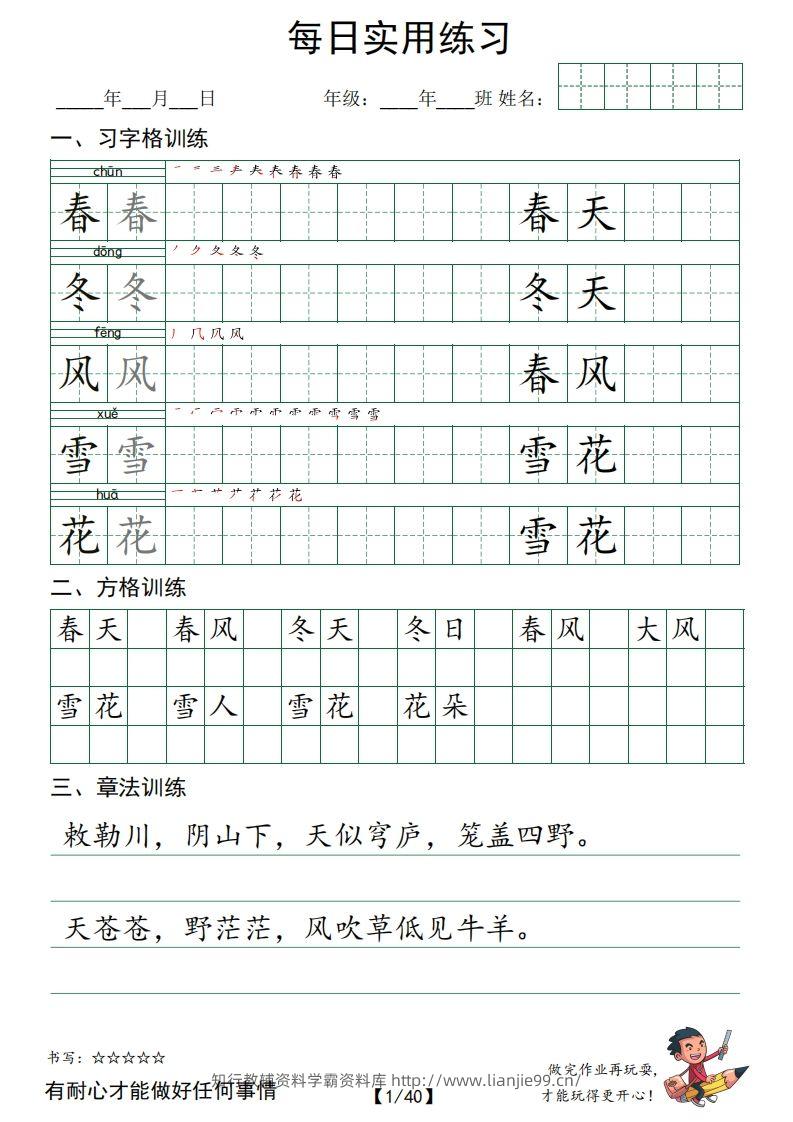 每日实用练习
_____年___月___日 年级：____年____班 姓名：
一、习字格训练
chūn
春 春 春 天
dōng
冬 冬 冬 天
fēng
风 风 春 风
xuě
雪 雪 雪 花
huā
花 花 雪 花
二、方格训练
春天 春风 冬天 冬日 春风 大风
雪花 雪人 雪花 花朵
三、章法训练
敕勒川，阴山下，天似穹庐，笼盖四野。
天苍苍，野茫茫，风吹草低见牛羊。
书写：☆☆☆☆☆
有耐心才能做好任何事情
知行教辅资料学霸资料库 http://www.lianjie99.cn/
【1/40】
做完作业再玩耍，
才能玩得更开心！